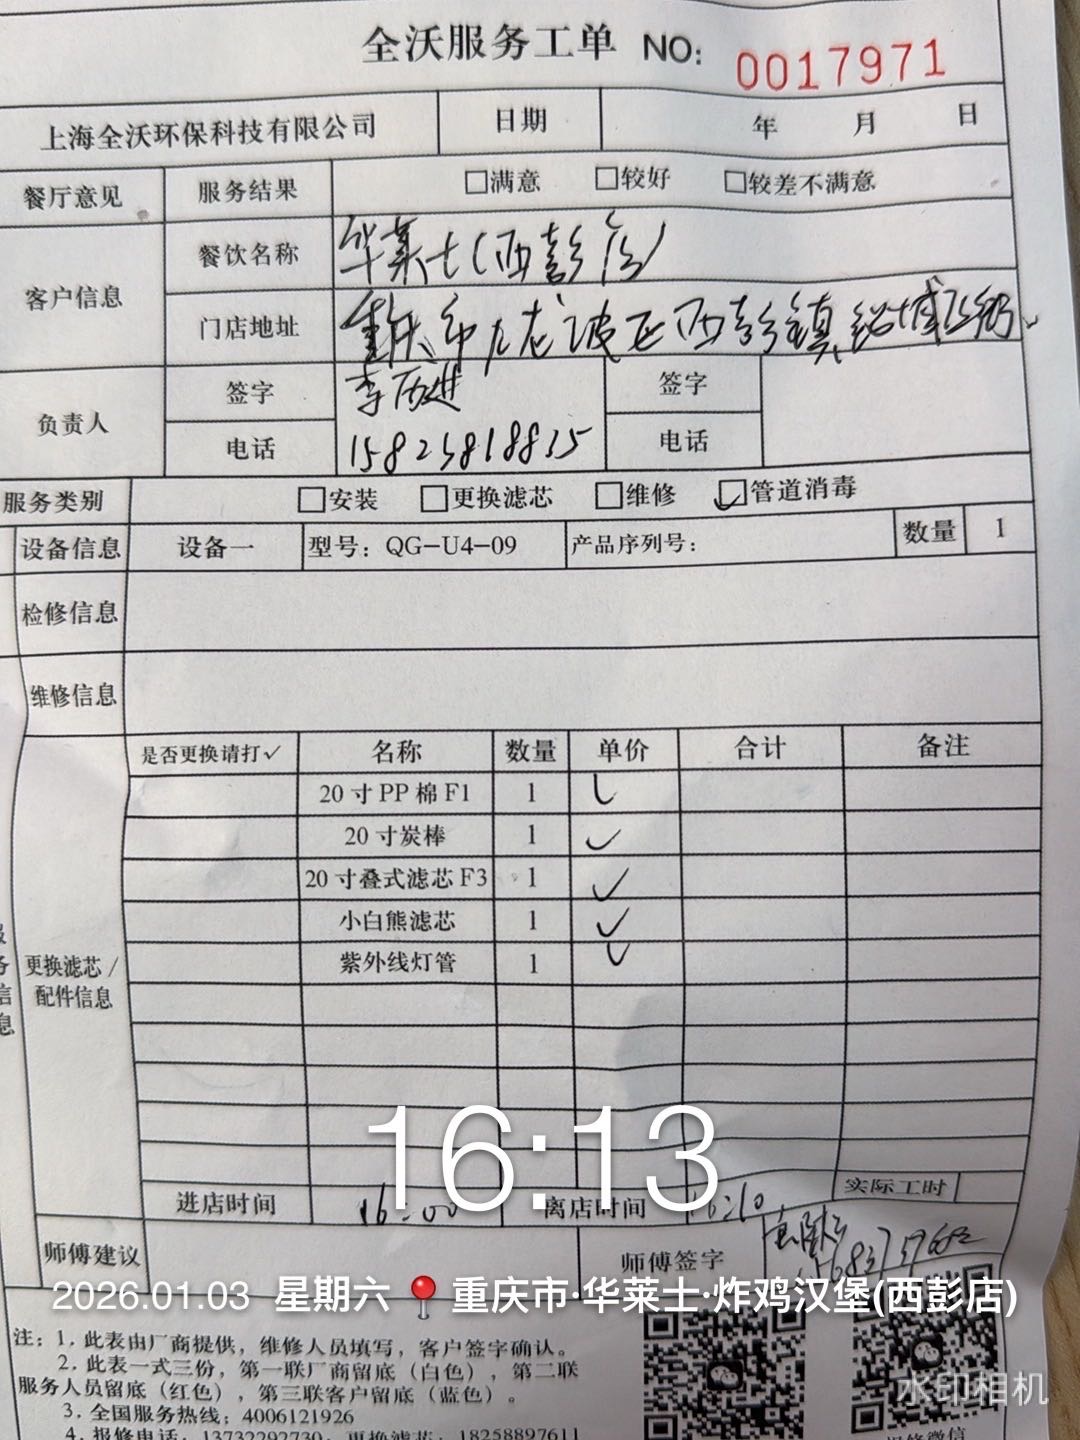 全沃服务工单 NO: 0017971
上海全沃环保科技有限公司 日期 年 月 日
餐厅意见 服务结果 □满意 □较好 □较差不满意
客户信息 餐饮名称 华莱士(西彭店)
门店地址 重庆市九龙坡区西彭镇
负责人 签字 签字
电话 15823818835 电话
服务类别 □安装 □更换滤芯 □维修 ☑管道消毒
设备信息 设备一 型号：QG-U4-09 产品序列号： 数量 1
检修信息
维修信息
是否更换请打✓ 名称 数量 单价 合计 备注
20寸PP棉F1 1 ✓
20寸炭棒 1 ✓
20寸叠式滤芯F3 1 ✓
小白熊滤芯 1 ✓
紫外线灯管 1 ✓
更换滤芯/
配件信息
16:13
进店时间 16:00 离店时间 16:10 实际工时
师傅建议 师傅签字
2026.01.03 星期六 重庆市·华莱士·炸鸡汉堡(西彭店)
注：1. 此表由厂商提供，维修人员填写，客户签字确认。
2. 此表一式三份，第一联厂商留底（白色），第二联
服务人员留底（红色），第三联客户留底（蓝色）。
3. 全国服务热线：4006121926
4. 报修电话：13732292730，更换滤芯：18258897611
水印相机